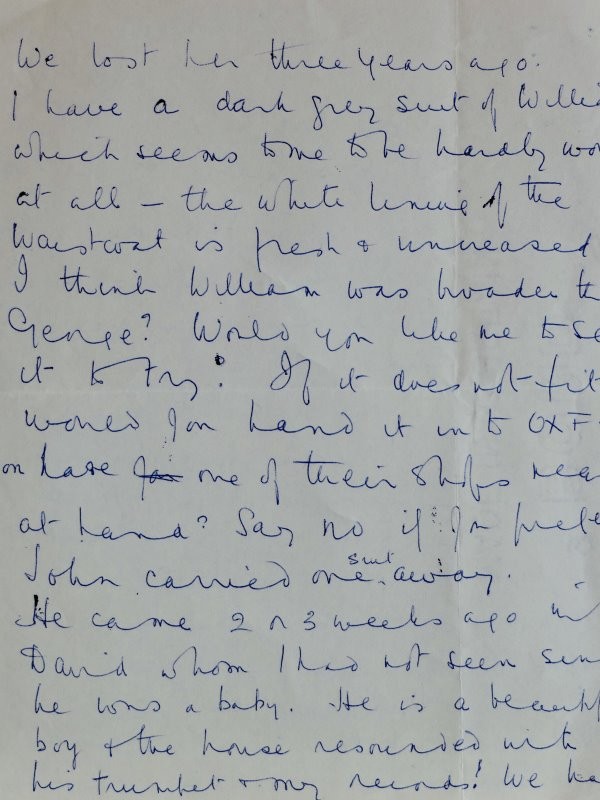 We lost her three years ago.
I have a dark grey suit of Willia
which seems to me to be hardly wo
at all – the white lining of the
Waistcoat is fresh & uncreased
I think William was broader th
George? Would you like me to se
it to try? If it does not fit
would you hand it in to OXF
on have one of their shops nea
at hand? Say no if you prefe
John carried one suit away.
He came 2 or 3 weeks ago
David whom I had not seen sin
he was a baby. He is a beautif
boy & the house resounded with
his trumpet & my records! We ha